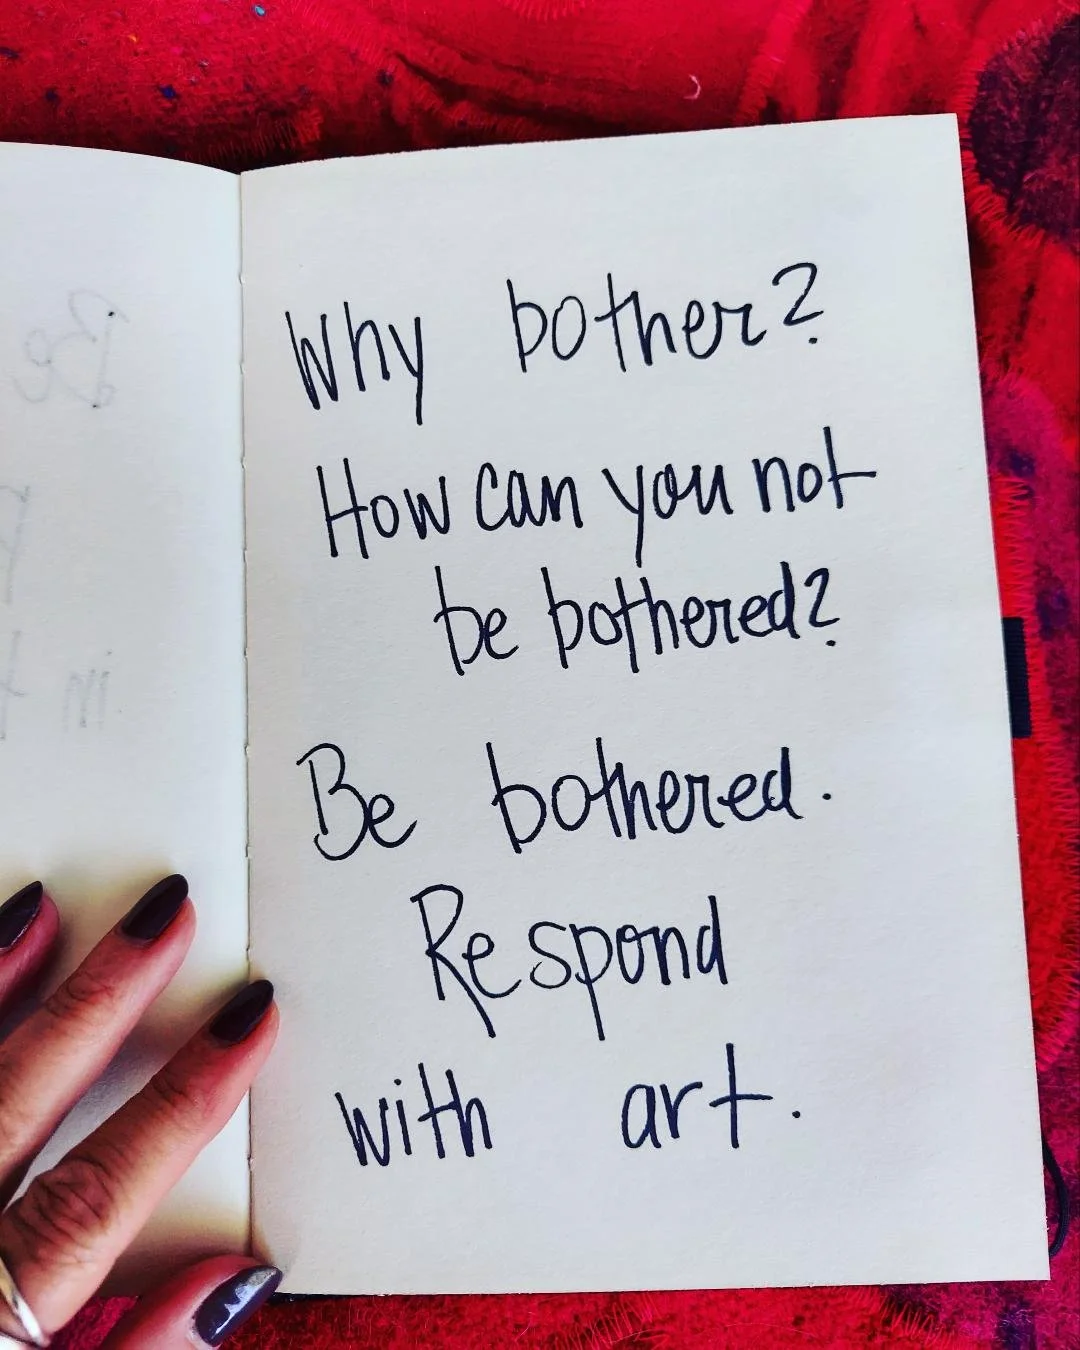 Why bother?
How can you not
be bothered?
Be bothered.
Respond
with art.